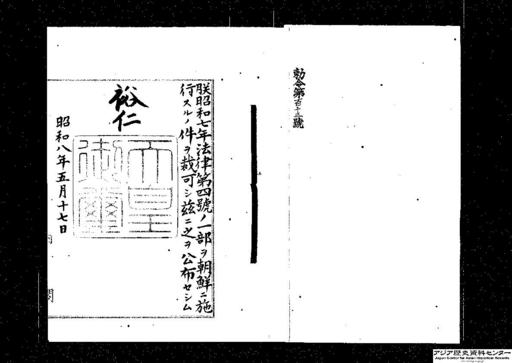 勅令第百十三號
朕昭和七年法律第四號ノ一部ヲ朝鮮ニ施
行スルノ件ヲ裁可シ玆ニ之ヲ公布セシム
裕仁
天皇御璽
昭和八年五月十七日
アジア歴史資料センター
Japan Center for Asian Historical Records